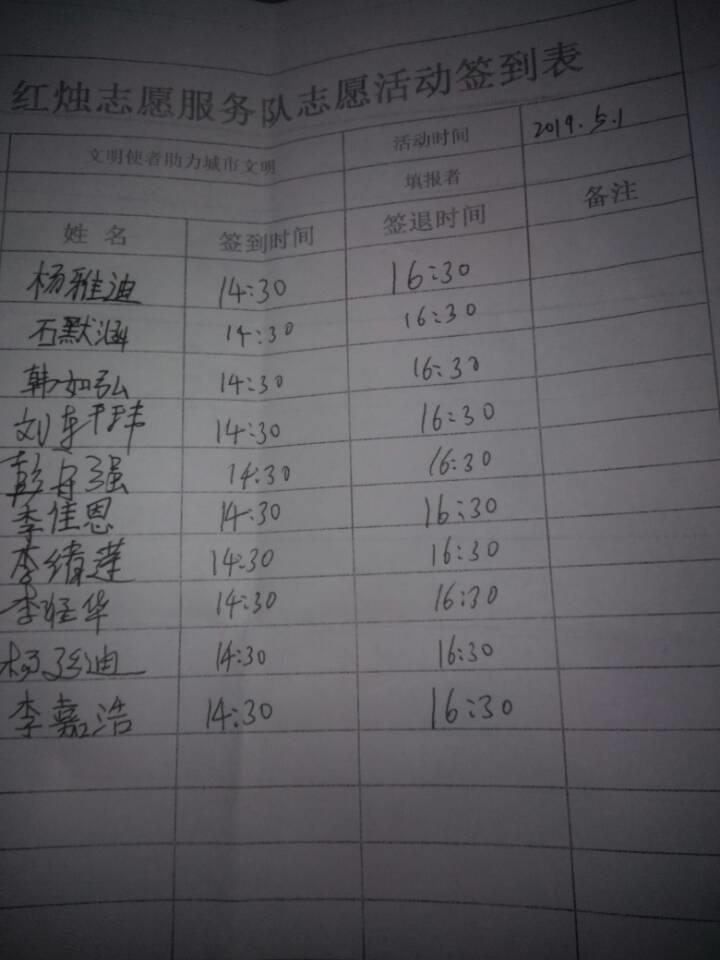 红烛志愿服务队志愿活动签到表
文明使者助力城市文明 活动时间 2019.5.1
填报者
姓名 签到时间 签退时间 备注
杨雅迪 14:30 16:30
石默涵 14:30 16:30
韩如弘 14:30 16:30
刘 14:30 16:30
彭 强 14:30 16:30
李佳恩 14:30 16:30
李绪莲 14:30 16:30
李 华 14:30 16:30
杨 迪 14:30 16:30
李嘉浩 14:30 16:30